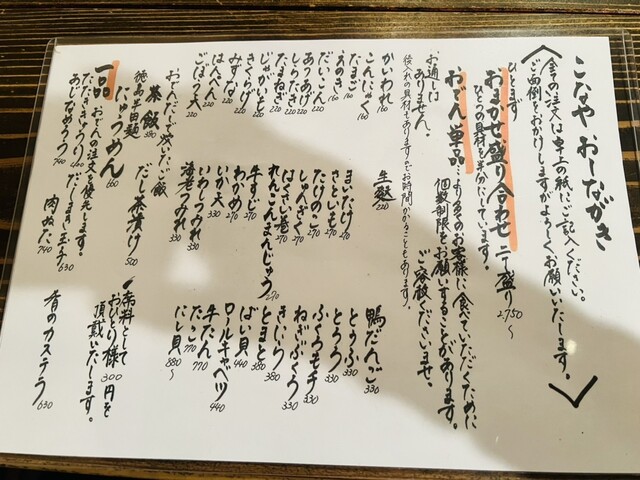 こなや おしながき
全ての注文は卓上の紙にご記入ください。
ご面倒をおかけしますがよろしくお願いいたします。
おまかせ盛り合わせ 二寸盛り 2,750〜
ひとつの具材を半分にしています。
おでん単品
…より多くのお客様に食べていただくために
個数制限をお願いすることがあります。
ご容赦くださいませ。
お通しはありません。
後入れの具材もありますのでお時間かかることもあります。
かいわれ 160
こんにゃく 160
たまご 160
えのき 160
だいこん 220
あつあげ 220
たまねぎ 220
しらたき 220
じゃがいも 220
きくらげ 220
みずな 220
はんぺん 220
ごぼう天 220
生麩 220
まいたけ 270
さといも 270
たけのこ 270
しゅんぎく 270
はくさい巻 270
れんこんまんじゅう 270
牛すじ 270
わかめ 270
いか天 330
いわしつみれ 330
海老つみれ 330
鴨だんご 330
とうふ 330
とうろく
ふくろモチ 330
ねぎぶくろ 330
きいく 380
とまと 380
ばい貝 440
ロールキャベツ 440
牛たん 770
たこ 770
にし貝 880〜
おでんだしで炊いたご飯
茶飯 380
だし茶漬け 500
徳島半田麺
にゅうめん 660
一品
おでんの注文を優先します。
たたききゅうり 400
だしまき玉子 630
肉ぬた 740
あじなめろう 740
席料として
おひとり様 300円を
頂戴いたします。
香のカステラ 630